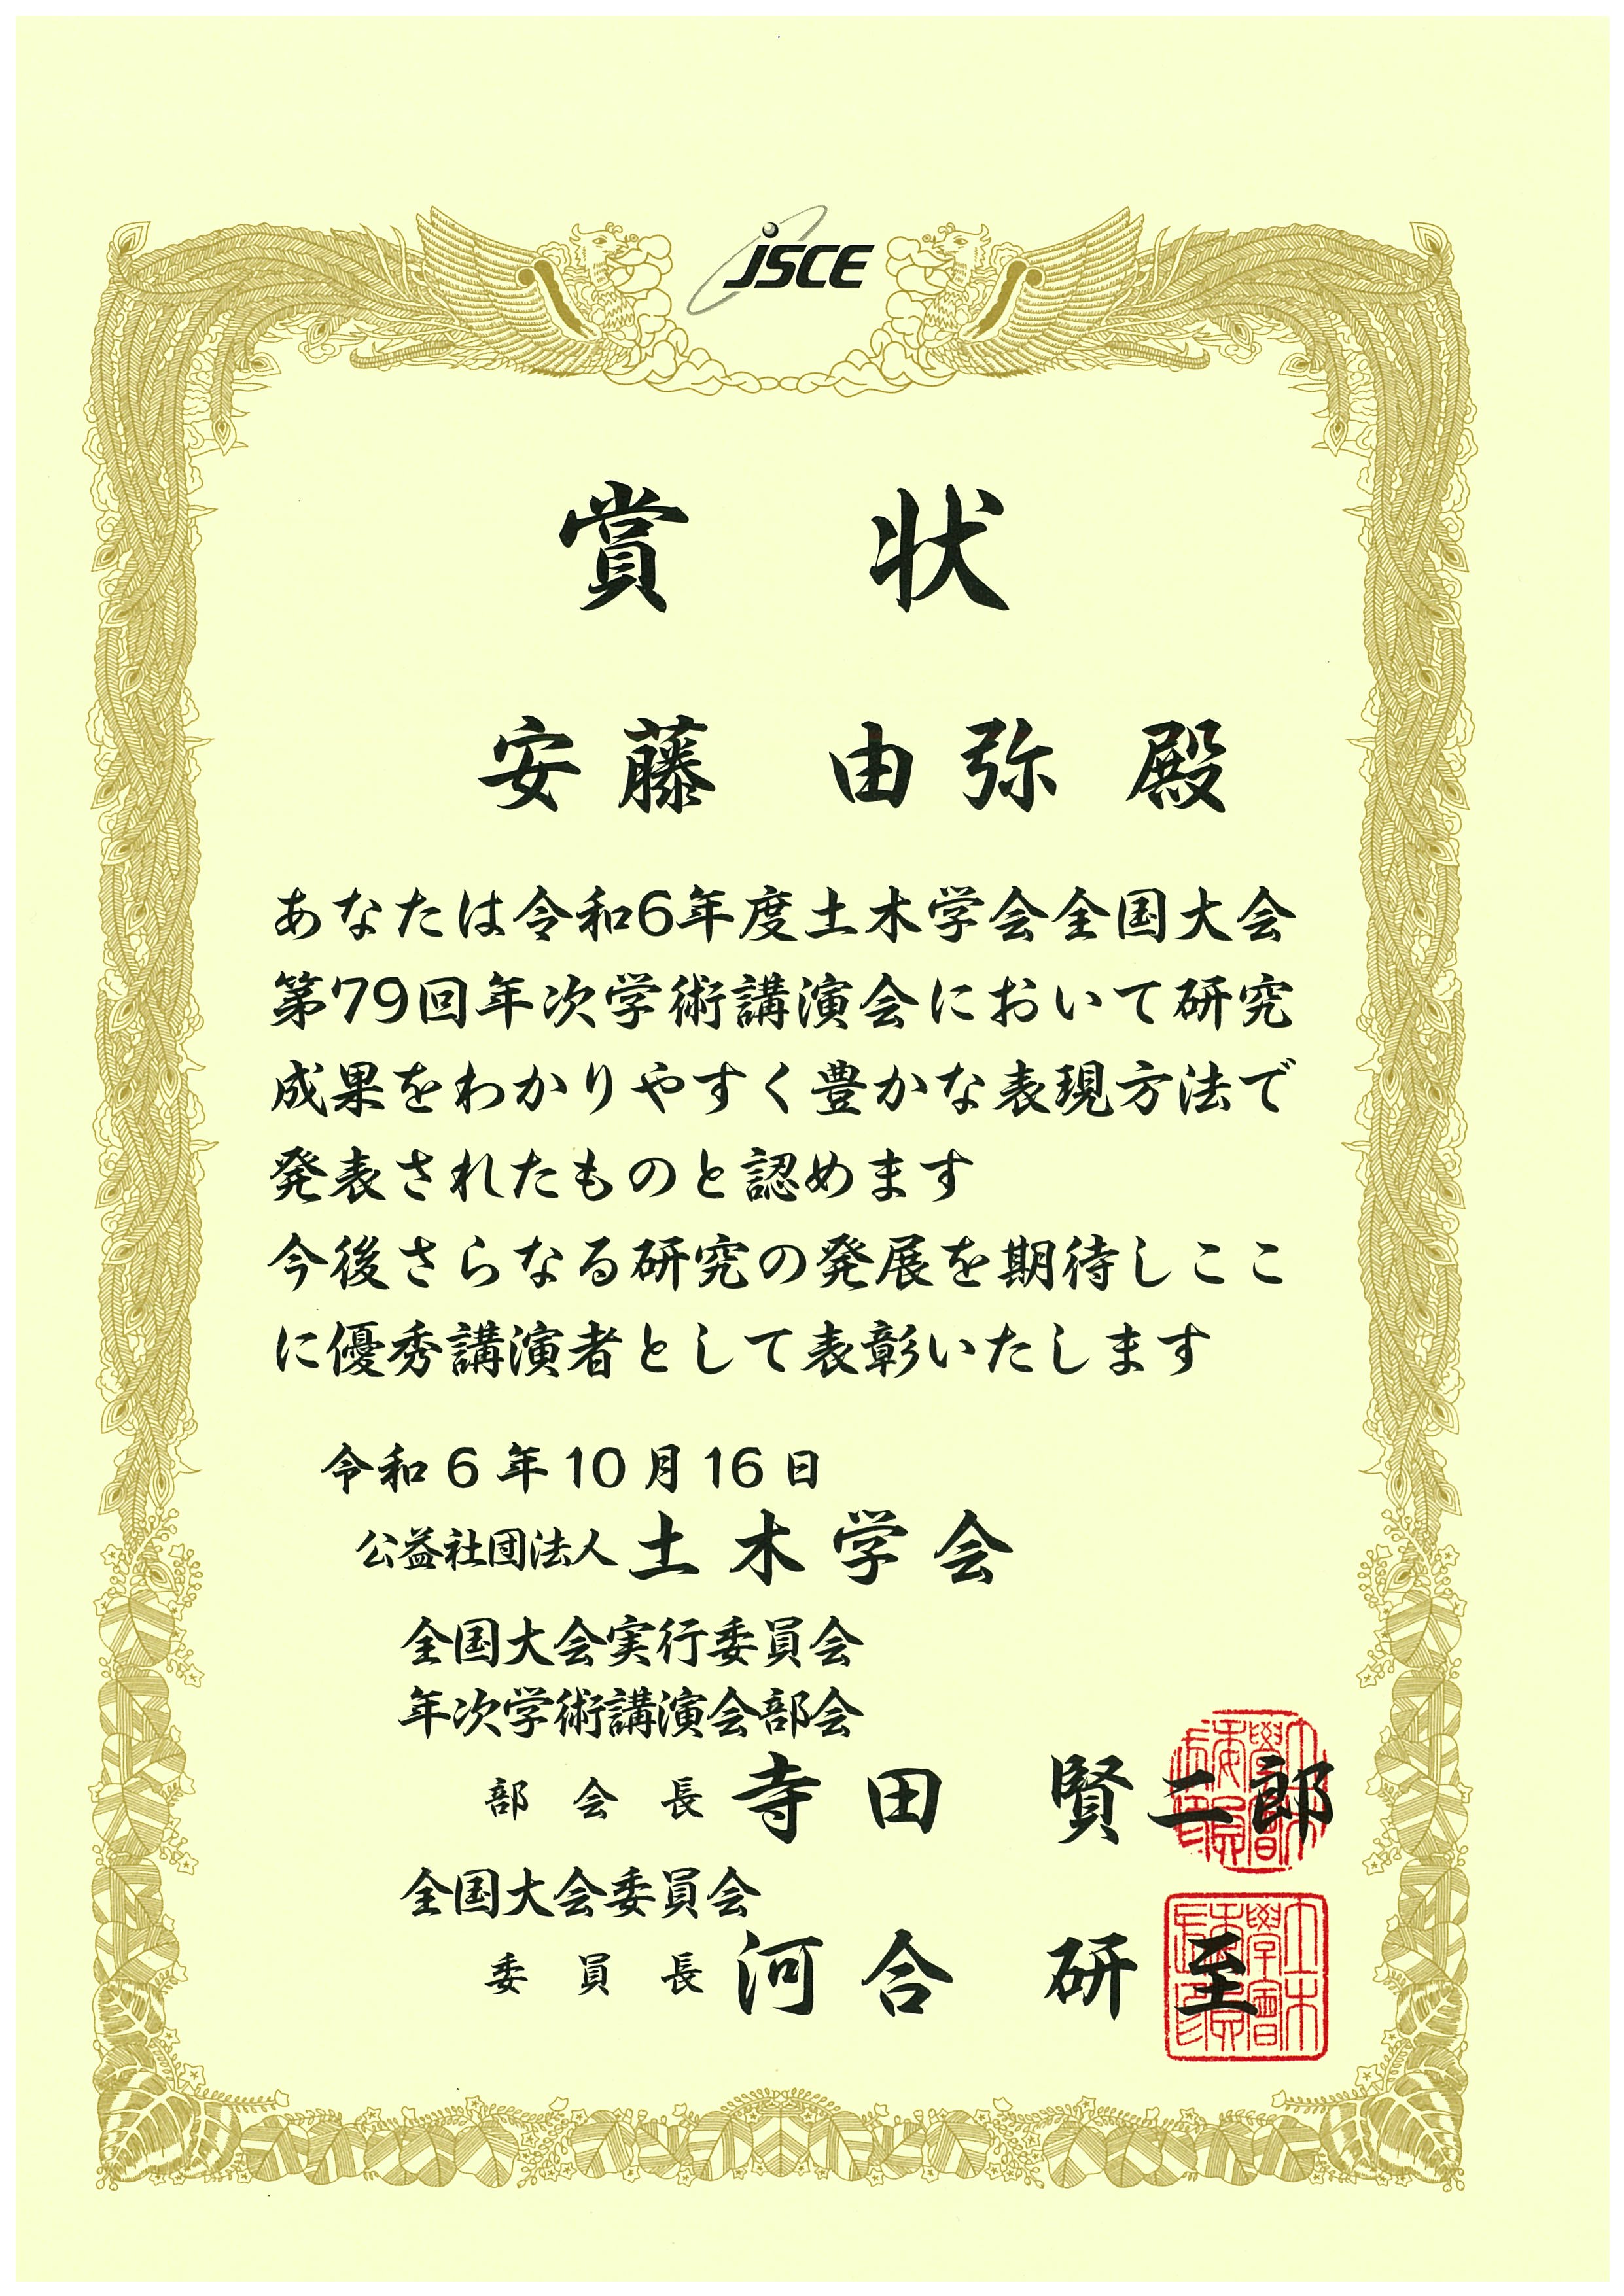 JSCE
賞状
安藤 由弥 殿
あなたは令和6年度土木学会全国大会
第79回年次学術講演会において研究
成果をわかりやすく豊かな表現方法で
発表されたものと認めます
今後さらなる研究の発展を期待しここ
に優秀講演者として表彰いたします
令和6年10月16日
公益社団法人 土木学会
全国大会実行委員会
年次学術講演会部会
部会長 寺田 賢二郎
全国大会委員会
委員長 河合 研至